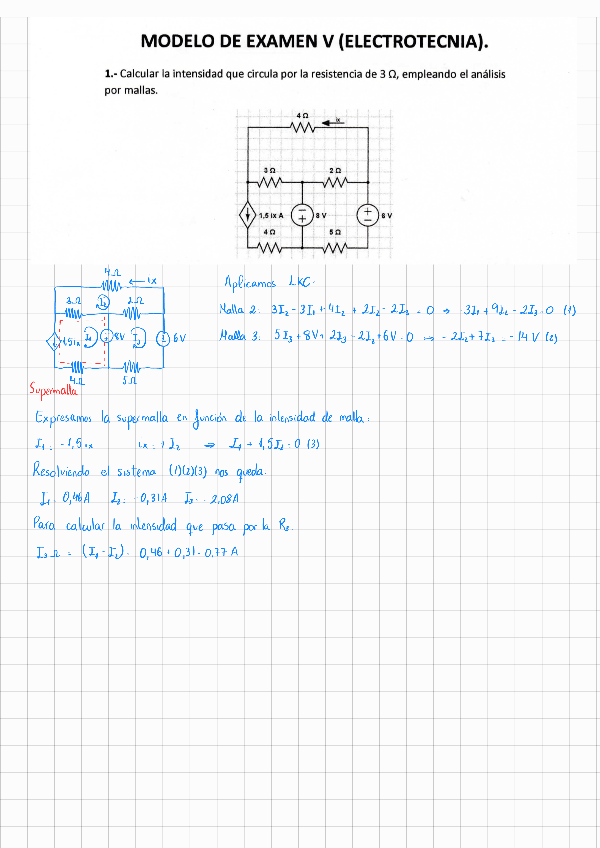 MODELO DE EXAMEN V (ELECTROTECNIA).
1.- Calcular la intensidad que circula por la resistencia de 3 Ω, empleando el análisis
por mallas.
4 Ω ix
3 Ω 2 Ω
1,5 ix A 8 V 6 V
4 Ω 5 Ω
4Ω ix
3Ω I₂ 2Ω
1,5ix I₁ 8V I₃ 6V
4Ω 5Ω
Aplicamos LKC.
Malla 2: 3I₂-3I₁+4I₂+2I₂-2I₃=0 ⇒ 3I₁+9I₂-2I₃=0 (1)
Malla 3: 5I₃+8V+2I₃-2I₂+6V=0 ⇒ -2I₂+7I₃=-14V (2)
Supermalla
Expresamos la supermalla en función de la intensidad de malla:
I₁=-1,5ix ix=I₂ ⇒ I₁+1,5I₂=0 (3)
Resolviendo el sistema (1)(2)(3) nos queda.
I₁=0,46A I₂=-0,31A I₃=-2,08A
Para calcular la intensidad que pasa por la R₃
I₃Ω = (I₁-I₂)= 0,46+0,31=0,77 A